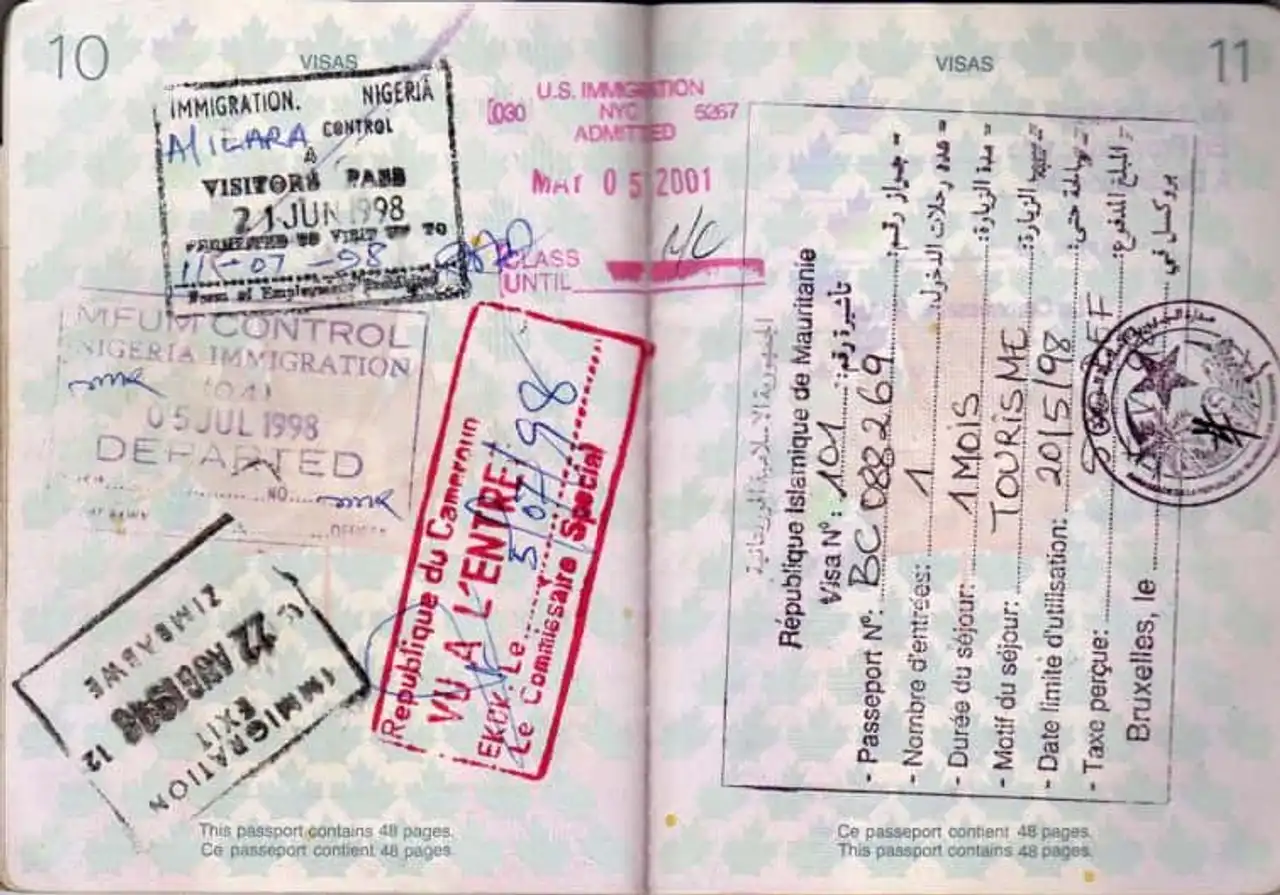 10
VISAS
IMMIGRATION. NIGERIA
CONTROL
VISITORS PASS
21 JUN 1998
PERMITTED TO VISIT UP TO
MFUM CONTROL
NIGERIA IMMIGRATION
(04)
05 JUL 1998
DEPARTED
NO.
U.S. IMMIGRATION
030 NYC 5267
ADMITTED
MAY 05 2001
CLASS
UNTIL
République du Cameroun
VU A L'ENTRE
EKOK. Le 5/07/98
Le Commissaire Special
IMMIGRATION
EXIT
22 AUG 1998 12
ZIMBABWE
This passport contains 48 pages.
Ce passeport contient 48 pages.
VISAS
11
الجمهورية الاسلامية الموريتانية
République Islamique de Mauritanie
Visa N°: 101 تأشيرة رقم:
- Passeport N°: BC 088269 - جواز رقم:
- Nombre d'entrées: 1 - عدد رحلات الدخول:
- Durée du séjour: 1 MOIS - مدة الزيارة:
- Motif du séjour: TOURISME الزيارة:
- Date limite d'utilisation: 20/5/98 - صالحة حتى:
- Taxe perçue: - المبلغ المدفوع:
Bruxelles, le بروكسل في
Ce passeport contient 48 pages.
This passport contains 48 pages.